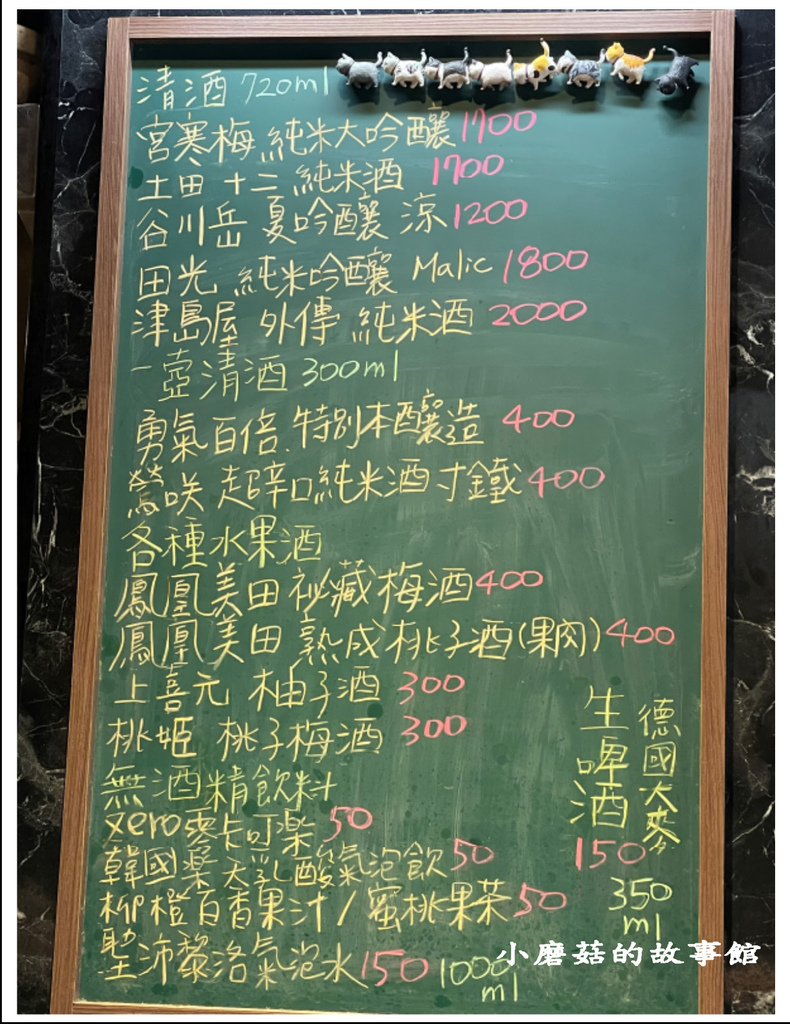 清酒 720ml
宮寒梅 純米大吟釀 1700
土田 十二 純米酒 1700
谷川岳 夏吟釀 涼 1200
田光 純米吟釀 Malic 1800
津島屋 外傳 純米酒 2000
一壺清酒 300ml
勇氣百倍 特別本釀造 400
鶯咲 超辛口純米酒 寸鐵 400
各種水果酒
鳳凰美田 祕藏梅酒 400
鳳凰美田 熟成桃子酒(果肉) 400
上喜元 柚子酒 300
桃姬 桃子梅酒 300
無酒精飲料
Xero零卡可樂 50
韓國樂天乳酸氣泡飲 50
柳橙百香果汁/蜜桃果茶 50
聖沛黎洛氣泡水 150 1000ml
德國大麥
生啤酒
150
350
ml
小磨菇的故事館